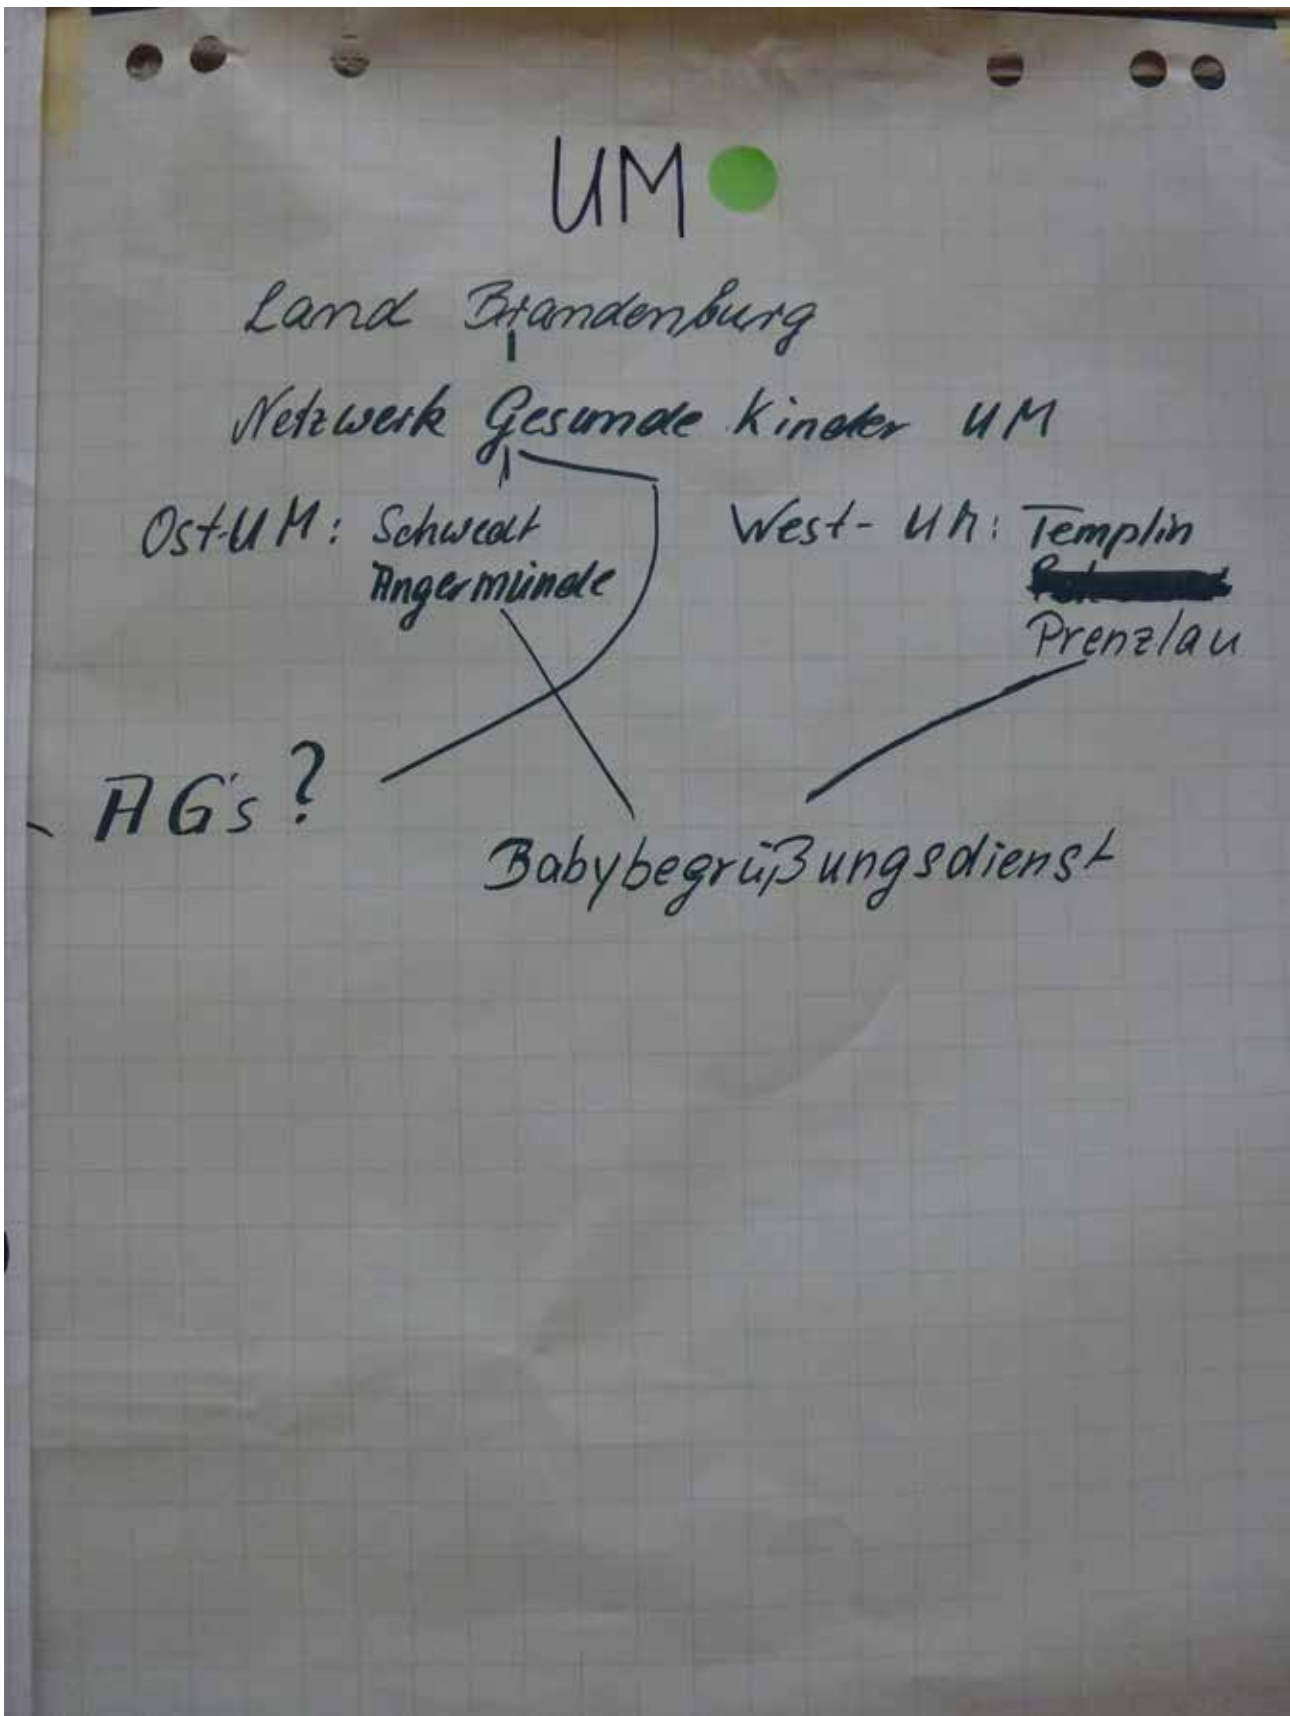 UM
Land Brandenburg
Netzwerk Gesunde Kinder UM
Ost-UM: Schwedt West-UM: Templin
Angermünde
Prenzlau
AG's ?
Babybegrüßungsdienst